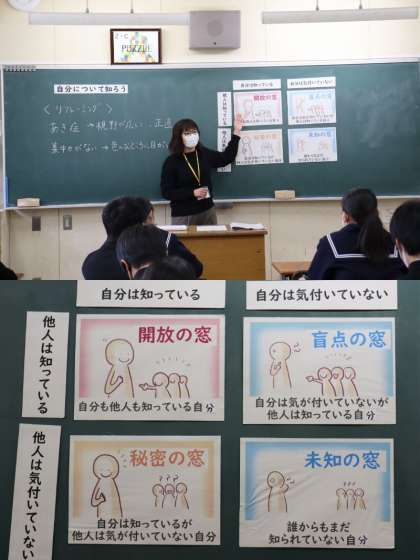 2-C
PUZZLE
自分について知ろう
自分は知っている
自分は気付いていない
<リフレーミング>
あき症 → 視野が広い
集中力がない → 色んなところに目が
他人は知っている
開放の窓
盲点の窓
秘密の窓
未知の窓
自分は知っている
自分は気付いていない
他人は知っている
開放の窓
自分も他人も知っている自分
盲点の窓
自分は気が付いていないが
他人は知っている自分
他人は気付いていない
秘密の窓
自分は知っているが
他人は気が付いていない自分
未知の窓
誰からもまだ
知られていない自分